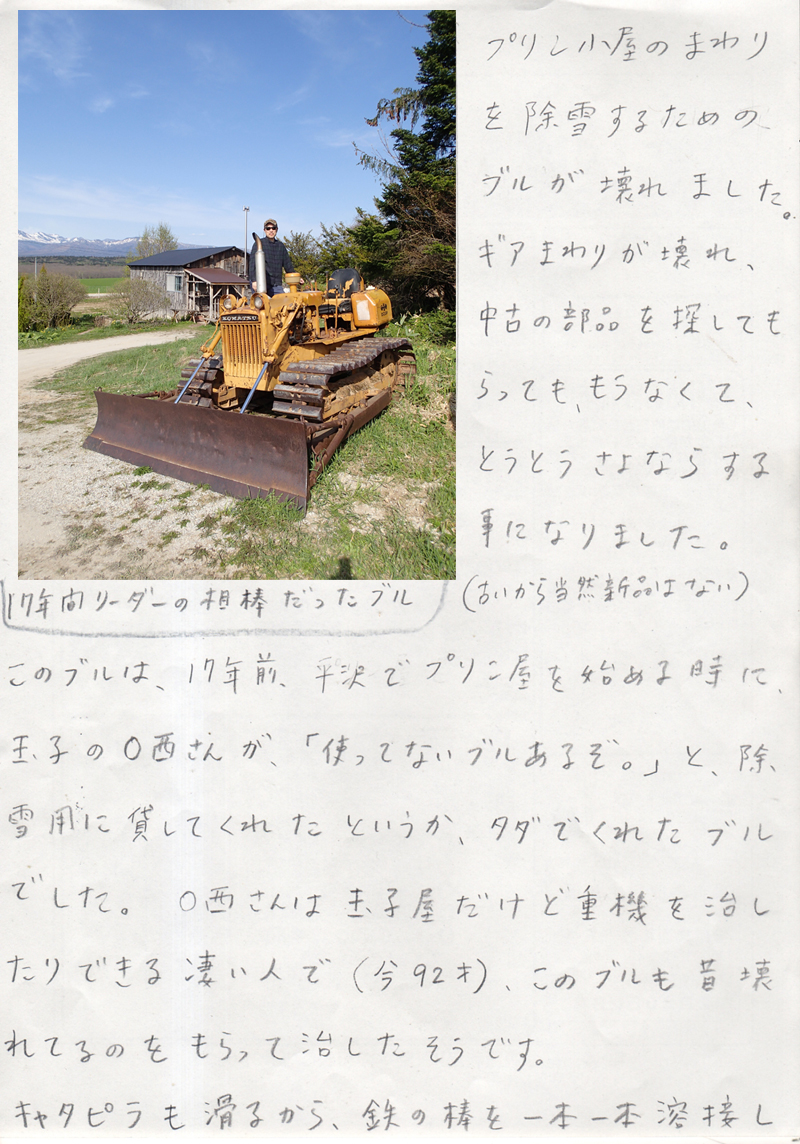 プリン小屋のまわり
を除雪するための
ブルが壊れました。
ギアまわりが壊れ、
中古の部品を探しても
らっても、もうなくて、
とうとうさよならする
事になりました。
(古いから当然新品はない)
KOMATSU
17年間リーダーの相棒だったブル
このブルは、17年前、平沢でプリン屋を始める時に、
玉子の〇西さんが、「使ってないブルあるぞ。」と、除
雪用に貸してくれたというか、タダでくれたブル
でした。 〇西さんは玉子屋だけど重機を治し
たりできる凄い人で(今92才)、このブルも昔壊
れてるのをもらって治したそうです。
キャタピラも滑るから、鉄の棒を一本一本溶接し